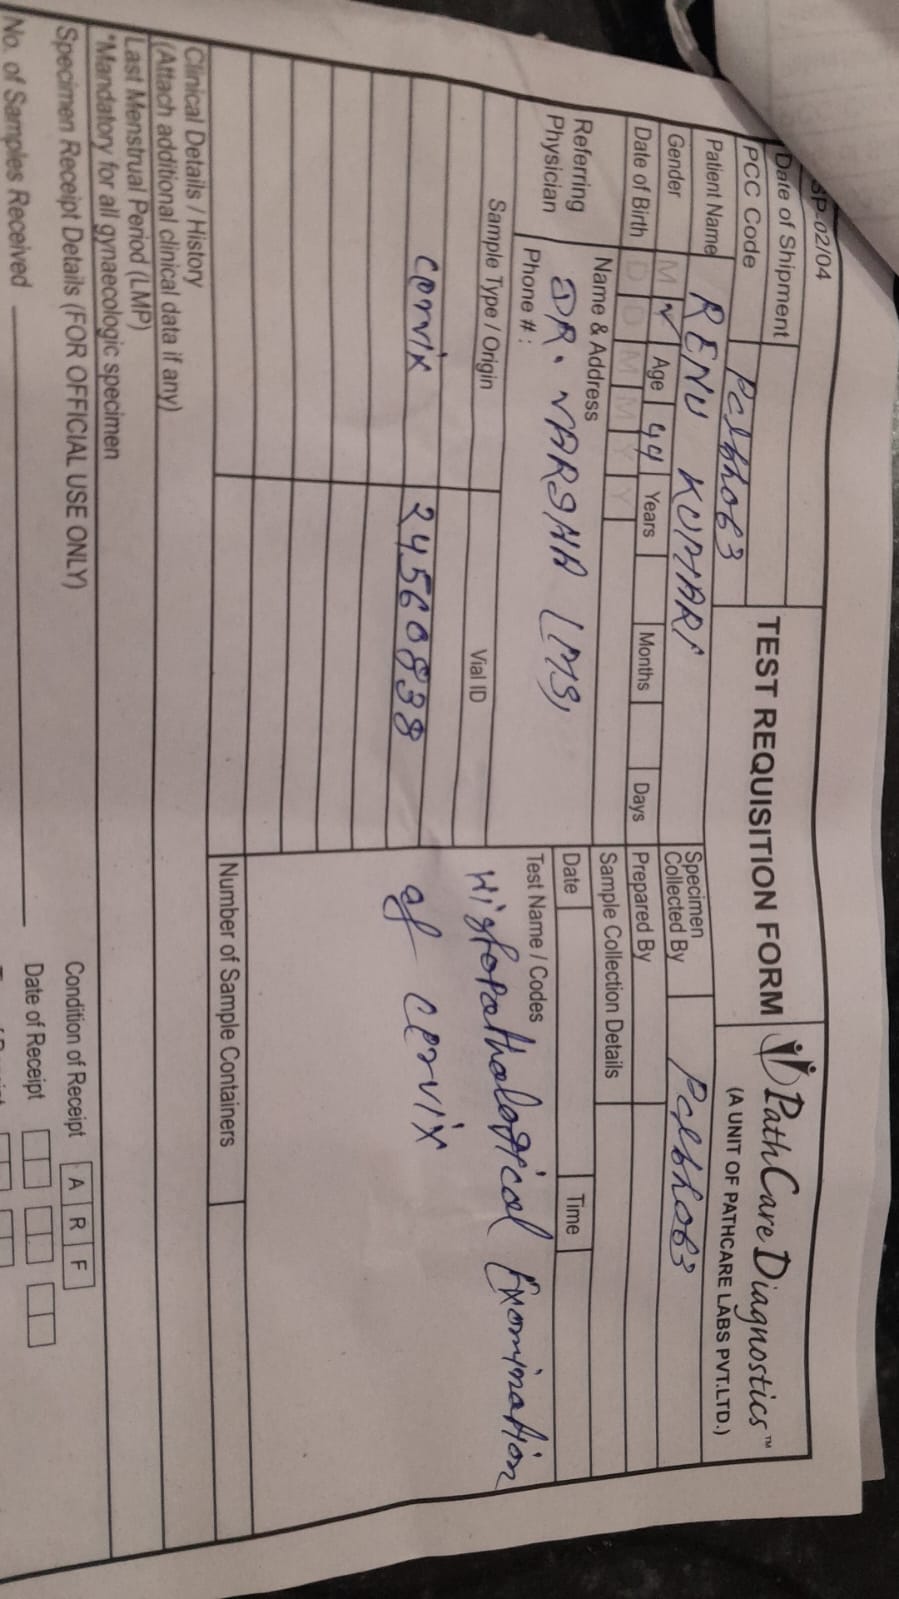 SP-02/04
Date of Shipment
PCC Code
TEST REQUISITION FORM
PathCare Diagnostics™
(A UNIT OF PATHCARE LABS PVT.LTD.)
Patient Name RENU KUMARI
Specimen Collected By
Gender M ✓ Age 44 Years Months Days
Prepared By
Date of Birth D D M M Y Y
Sample Collection Details
Referring Physician
Name & Address
DR. VARSHA (MS)
Phone # :
Date Time
Sample Type / Origin Vial ID
Test Name / Codes
cervix 24560838
Histopathological Examination
of cervix
Number of Sample Containers
Clinical Details / History
(Attach additional clinical data if any)
Last Menstrual Period (LMP)
*Mandatory for all gynaecologic specimen
Specimen Receipt Details (FOR OFFICIAL USE ONLY)
Condition of Receipt A R F
No. of Samples Received
Date of Receipt